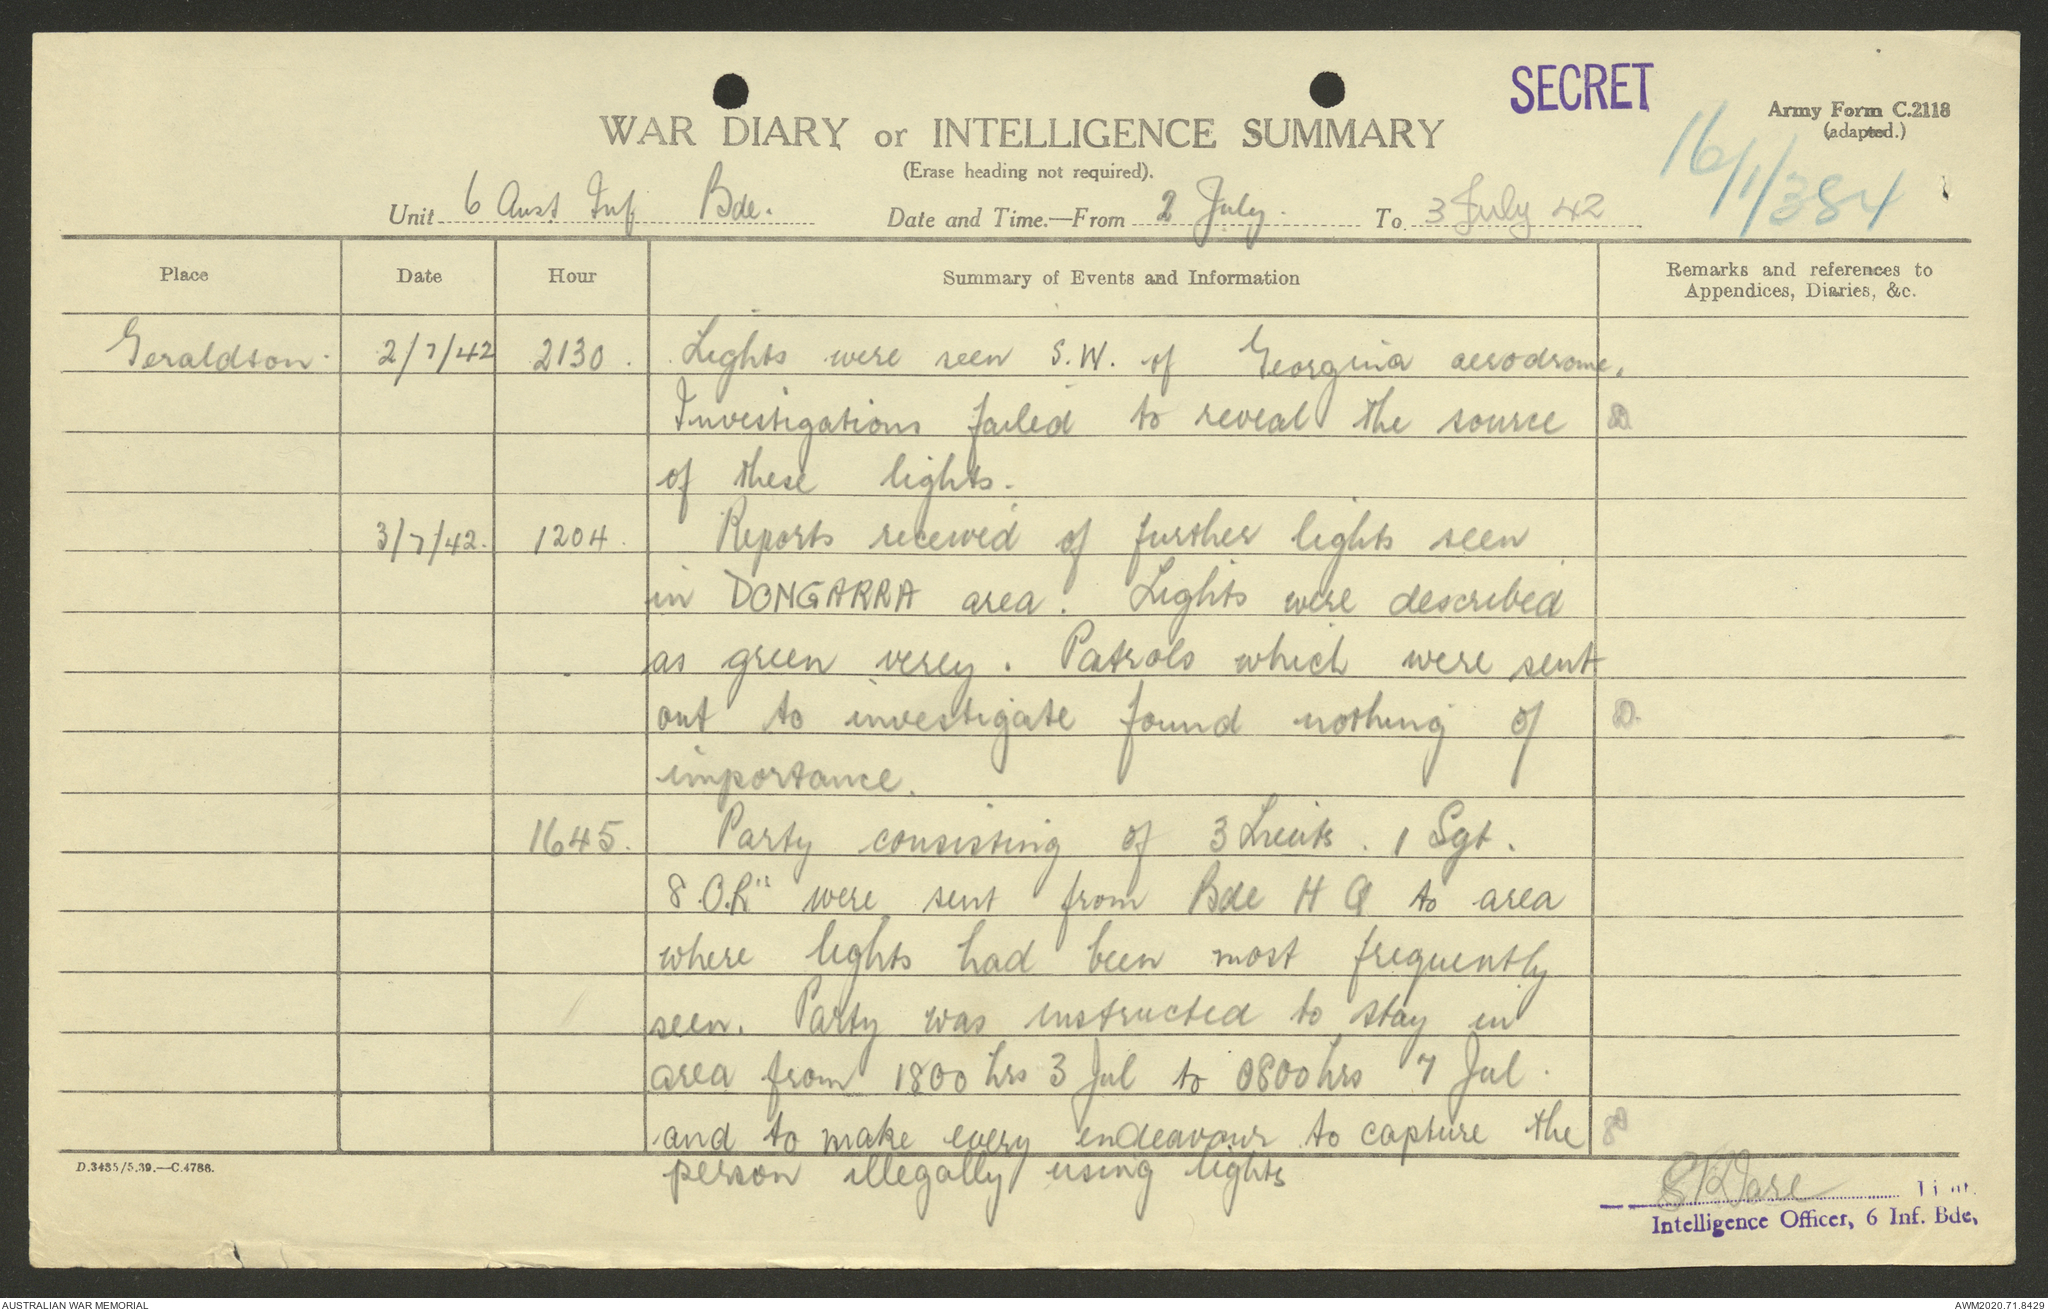 SECRET
Army Form C.2118
(adapted.)
16/1/384
WAR DIARY or INTELLIGENCE SUMMARY
(Erase heading not required).
Unit 6 Aust Inf Bde. Date and Time.—From 2 July. To 3 July 42
Place Date Hour Summary of Events and Information Remarks and references to
Appendices, Diaries, &c.
Geraldson. 2/7/42 2130. Lights were seen S.W. of Georgina aerodrome.
Investigations failed to reveal the source
of these lights.
3/7/42. 1204. Reports received of further lights seen
in DONGARRA area. Lights were described
as green verey. Patrols which were sent
out to investigate found nothing of
importance.
1645. Party consisting of 3 Lieuts. 1 Sgt.
8 O.R" were sent from Bde H Q to area
where lights had been most frequently
seen. Party was instructed to stay in
area from 1800 hrs 3 Jul to 0800 hrs 7 Jul.
and to make every endeavour to capture the
person illegally using lights
D.3485/5.39.—C.4786.
Lieut.
Intelligence Officer, 6 Inf. Bde,
AUSTRALIAN WAR MEMORIAL
AWM2020.71.8429